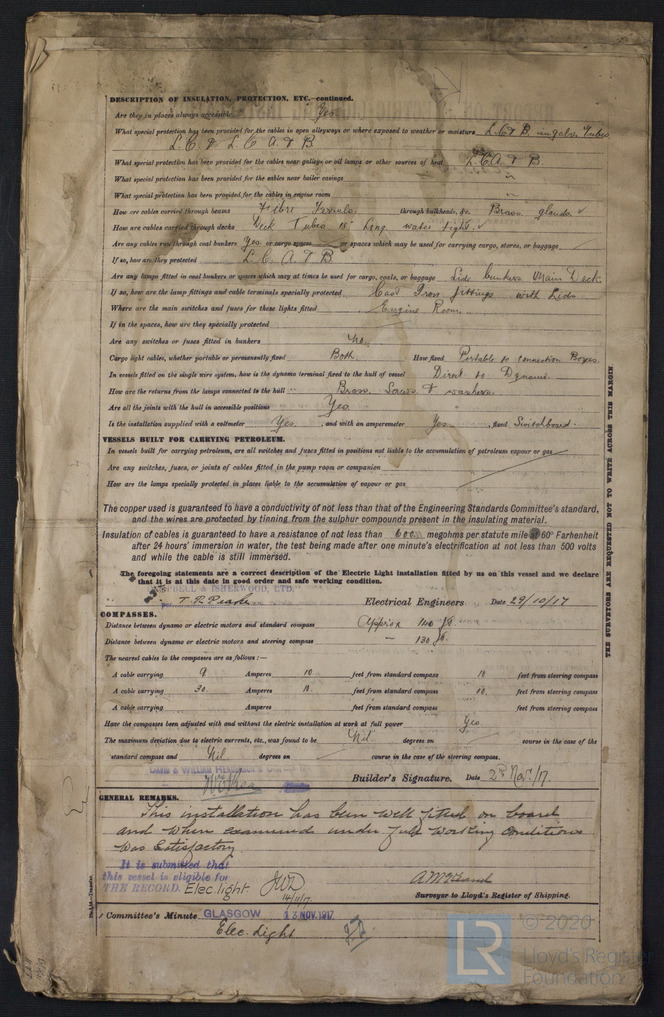 DESCRIPTION OF INSULATION, PROTECTION, ETC.—continued.
Are they in places always accessible Yes
What special protection has been provided for the cables in open alleyways or where exposed to weather or moisture L.C & B in galv. Tubes
L.C. & L C A & B
What special protection has been provided for the cables near galleys or oil lamps or other sources of heat L C A & B.
What special protection has been provided for the cables near boiler casings "
What special protection has been provided for the cables in engine room "
How are cables carried through beams Fibre Ferruls through bulkheads, &c. Brass glands. ✓
How are cables carried through decks Deck Tubes 18" long water tight. ✓
Are any cables run through coal bunkers Yes or cargo spaces or spaces which may be used for carrying cargo, stores, or baggage
If so, how are they protected L C A & B
Are any lamps fitted in coal bunkers or spaces which may at times be used for cargo, coals, or baggage Side bunkers Main Deck
If so, how are the lamp fittings and cable terminals specially protected Cast Iron fittings with Lids
Where are the main switches and fuses for these lights fitted Engine Room
If in the spaces, how are they specially protected
Are any switches or fuses fitted in bunkers No
Cargo light cables, whether portable or permanently fixed Both. How fixed Portable to connection Boxes.
In vessels fitted on the single wire system, how is the dynamo terminal fixed to the hull of vessel Direct to Dynamo.
How are the returns from the lamps connected to the hull Brass Screws & washers.
Are all the joints with the hull in accessible positions Yes
Is the installation supplied with a voltmeter Yes, and with an amperemeter Yes, fixed Switchboard.
VESSELS BUILT FOR CARRYING PETROLEUM.
In vessels built for carrying petroleum, are all switches and fuses fitted in positions not liable to the accumulation of petroleum vapour or gas
Are any switches, fuses, or joints of cables fitted in the pump room or companion
How are the lamps specially protected in places liable to the accumulation of vapour or gas
The copper used is guaranteed to have a conductivity of not less than that of the Engineering Standards Committee's standard,
and the wires are protected by tinning from the sulphur compounds present in the insulating material.
Insulation of cables is guaranteed to have a resistance of not less than 600 megohms per statute mile at 60° Farhenheit
after 24 hours' immersion in water, the test being made after one minute's electrification at not less than 500 volts
and while the cable is still immersed.
The foregoing statements are a correct description of the Electric Light installation fitted by us on this vessel and we declare
that it is at this date in good order and safe working condition.
CAMPBELL & ISHERWOOD, LTD.
Electrical Engineers Date 29/10/17
COMPASSES.
Distance between dynamo or electric motors and standard compass 140 ft
Distance between dynamo or electric motors and steering compass 130 ft.
The nearest cables to the compasses are as follows:—
A cable carrying 9 Amperes 10 feet from standard compass 10 feet from steering compass
A cable carrying 30 Amperes feet from standard compass 10 feet from steering compass
A cable carrying Amperes feet from standard compass feet from steering compass
Have the compasses been adjusted with and without the electric installation at work at full power Yes
The maximum deviation due to electric currents, etc., was found to be Nil degrees on course in the case of the
standard compass and Nil degrees on course in the case of the steering compass.
Builder's Signature. Date 2nd Nov./17.
GENERAL REMARKS.
This installation has been well fitted on board
and when examined under full working conditions
was satisfactory
It is submitted that
this vessel is eligible for
THE RECORD. Elec. light JWD
14/11/17
Surveyor to Lloyd's Register of Shipping.
Committee's Minute GLASGOW 13 NOV. 1917
Elec. Light
THE SURVEYORS ARE REQUESTED NOT TO WRITE ACROSS THIS MARGIN
LR
© 2020
Lloyd's Register
Foundation